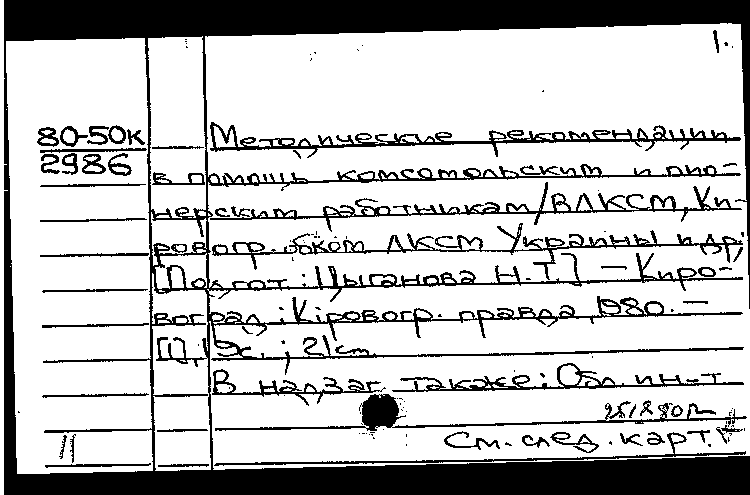 1.
80-50к
2986
Методические рекомендации
в помощь комсомольским и пио-
нерским работникам/ВЛКСМ, Ки-
ровогр. обком ЛКСМ Украины и др;
[Подгот.: Цыганова Н.Т.] — Киро-
воград: Кiровогр. правда, 1980. —
[1], 19с.; 21см.
В надзаг. также: Обл. ин-т
См. след. карт.
11